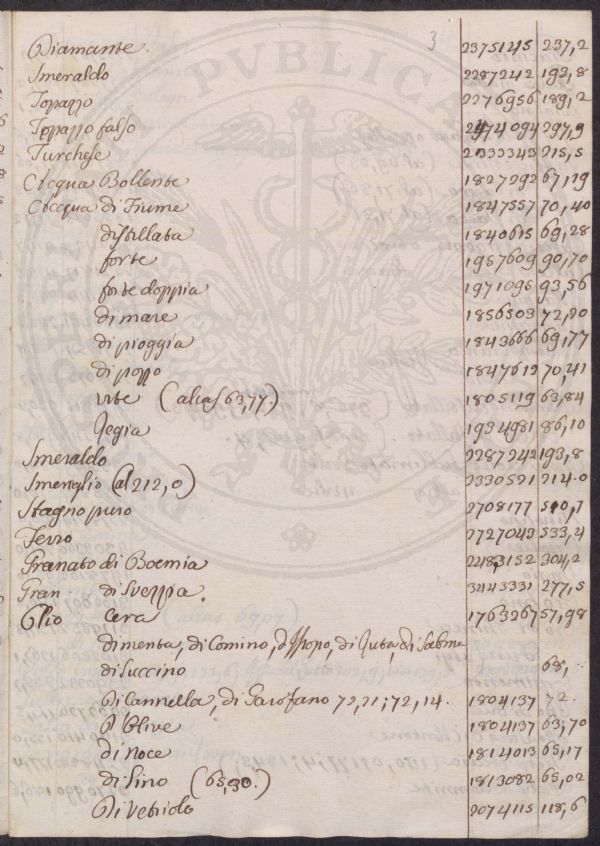 3
Diamante. 2375145 237,2
Smeraldo 2287242 193,8
Topazzo 2276956 189,2
Topazzo falso 2474094 297,9
Turchese 2333343 215,5
Acqua Bollente 1827292 67,19
Acqua di Fiume 1847557 70,40
distillata 1840615 69,28
forte 1957609 90,70
forte doppia 1971096 93,56
di mare 1856503 72,00
di pioggia 1843666 69,77
di pozzo 1847613 70,41
vite (alias 63,77.) 1805119 63,84
Regia 1934981 86,10
Smeraldo 2287242 193,8
Smeriglio (al 212,0) 2330591 214.0
Stagno puro 2708177 510,7
Ferro 2727043 533,4
Granato di Boemia 2483152 304,2
Gran. di Svezzia. 2443331 277,5
Olio Cera 1763267 57,98
di menta, di Comino, d'Issopo, di Ruta, di Sabina
di Succino 68,
di Cannella, di Garofano 72,21; 72,14. 1804137 72.
d'Olive 1804137 63,70
di noce 1814013 65,17
di Lino (65,30.) 1813082 65,02
di Vetriolo 2074115 118,6
PUBLICA